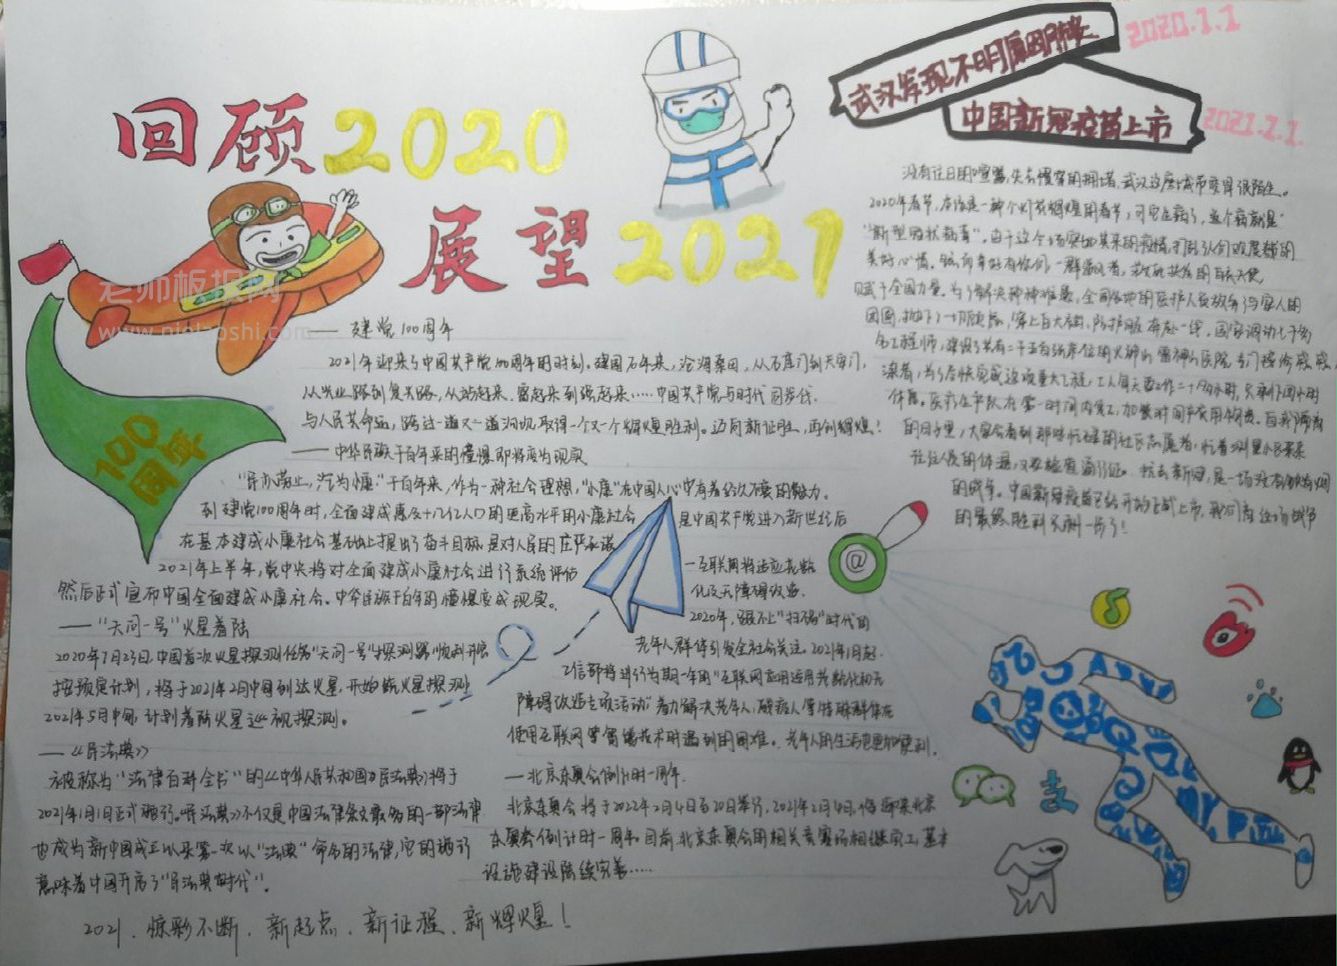 回顾2020
展望2021
武汉发现不明原因肺炎
2020.1.1
中国新冠疫苗上市
2021.1.1.
老师板报网
100
周年
—— 建党100周年
2021年迎来了中国共产党100周年的时刻。建国百年来，沧海桑田，从石库门到天安门，
从兴业路到复兴路，从站起来、富起来到强起来……中国共产党与时代同步伐、
与人民共命运，跨过一道又一道沟坎取得一个又一个辉煌胜利。迈向新征程，再创辉煌！
——中华民族千百年来的憧憬即将变为现实
"民亦劳止，汔可小康"千百年来，作为一种社会理想，"小康"在中国人心中有着经久不衰的魅力。
到建党100周年时，全面建成惠及十几亿人口的更高水平的小康社会 是中国共产党进入新世纪后
在基本建成小康社会基础上提出了奋斗目标，是对人民的庄严承诺
2021年上半年，党中央将对全面建成小康社会进行系统评估
然后正式宣布中国全面建成小康社会。中华民族千百年的憧憬变成现实。
——"天问一号"火星着陆
2020年7月23日，中国首次火星探测任务"天问一号"探测器顺利升空
按预定计划，将于2021年2月中国到达火星，开始做火星探测
2021年5月中旬，计划着陆火星巡视探测。
——《民法典》
被称为"法律百科全书"的《中华人民共和国民法典》将于
2021年1月1日正式施行。《民法典》不仅是中国法律条文最多的一部法律
也成为新中国成立以来第一次以"法典"命名的法律，它的施行
意味着中国开启了"民法典时代"。
2021、惊彩不断、新起点、新征程、新辉煌！
—互联网将适应老龄
化及无障碍改造
2020年，跟不上"扫码"时代的
老年人群体引发全社会关注。2021年1月起.
工信部将进行为期一年的"互联网应用适用老龄化和无
障碍改造专项活动"着力解决老年人，残疾人等特殊群体在
使用互联网等智能技术时遇到的困难。老年人的生活也更加便利.
—北京冬奥会倒计时一周年.
北京冬奥会将于2022年2月4日至20日举行，2021年2月4日，将迎来北京
冬奥会倒计时一周年。目前，北京冬奥会的相关竞赛场相继完工，基本
设施建设陆续完善……
没有往日的喧嚣，失去惯常的拥堵，武汉这座城市变得很陌生。
2020年春节，本该是一种个灯花辉煌的春节，可它生病了，这个病就是
"新型冠状病毒"。由于这个场突如其来的疫情，打乱认们欢度新的
美好心情。
赋予全国力量。为了解决种种难题，全国各地的医护人员放弃与家人的
的日子里，大家会看到那些忙碌的社区志愿者，忙着测量小区来来
往往人员的体温，又要检查通行证。抗击新冠，是一场没有硝烟
的战争。中国新冠疫苗已经开始上市，我们离这场战争
的最终胜利又前一步了！
@
支